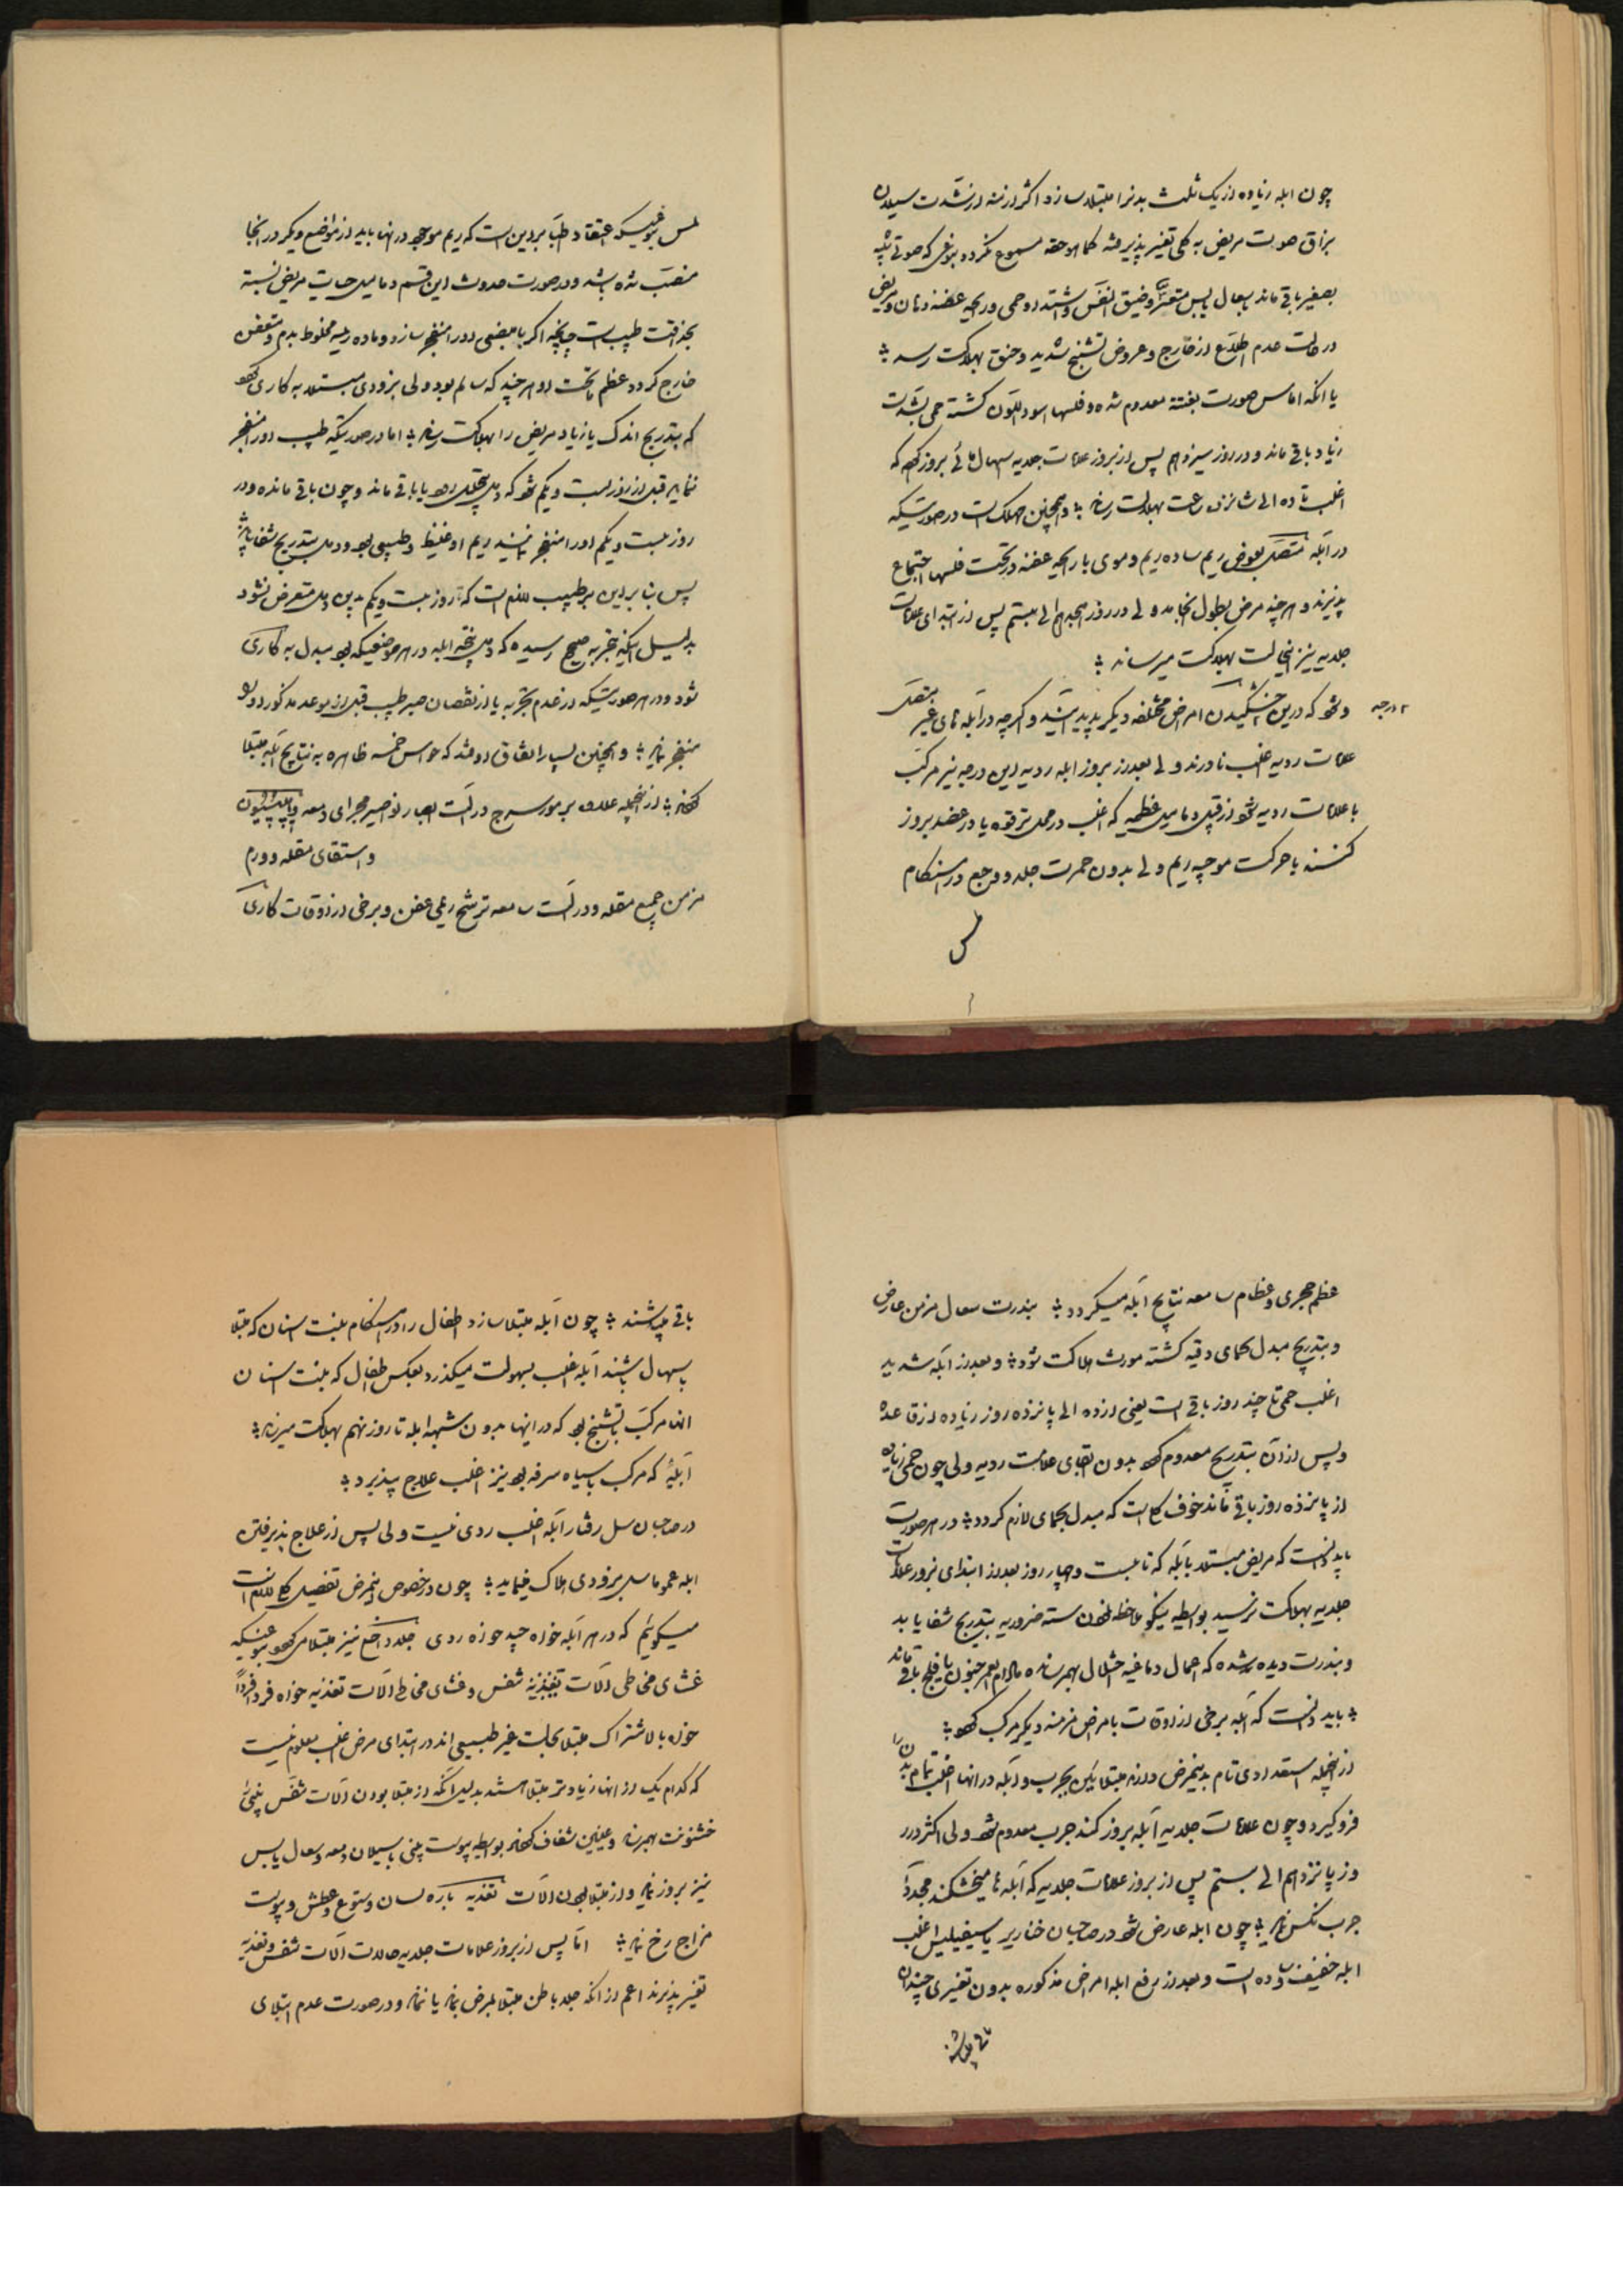 چون ابله زیاده از یک ثلث بدنرا مبتلا سازد اکثر ازمنه از شدت سیلان
بزاق صوت مریض به کلی تغییر پذیرفته کما هو حقه مسموع نکردد بنوعی که صوتی شبیه
بصغیر باقی ماند با سعال یابس متعسر و ضیق النفس و اشتداد حمی و رایحه عفنه دهان و مریض
در حالت عدم اطلاع از خارج و عروض تشنج شدید و خنق بهلاکت رسد
یا انکه اماس صورت بغتة معدوم شده و فلسها اسود اللون کشته حمی بشدت
زیاد باقی ماند و در روز سیزدهم پس از بروز علامات جلدیه اسهال مائی بروز کند که
اغلب تا ده الی شانزده ساعت بهلاکت رساند و همچنین مهلک است در صورتیکه
در ابله متصل بعوض ریم ساده ریم دموی با رایحه عفنه در تحت فلسها اجتماع
پذیرند و هر چند مرض بطول انجامد ولی در روز هجدهم الی بیستم پس از ابتدای علامات
جلدیه نیز اینحالت بهلاکت میرساند
۴ درجه
و شود که در بین خشکیدن امراض مختلفه دیکر پدید آیند و اکرچه در ابله های غیر متصل
علامات ردیه اغلب نادرند ولی بعد از بروز ابله ردیه این درجه نیز مرکب
با علامات ردیه شود از قبیل دمامیل عظیمه که اغلب در محل ترقوه یا در عضد بروز
کنند با حرکت موجیه ریم ولی بدون حمرت جلد و وجع در استحکام
لمس
لمس بنوعیکه اعتقاد اطبا بر این است که ریم موجود در انها باید از مواضع دیکر در انجا
منصب شده باشد و در صورت حدوث این قسم دمامیل حیات مریض نسبة
بحذاقت طبیب است چنانچه اکر با مبضعی اورا منفجر سازد و ماده ریمیه مخلوط بدم و متعفن
خارج کردد عظم ماتحت او هر چند که سالم بود ولی بزودی مبتلا به کاری شود
که بتدریج اندک یا زیاد مریض را بهلاکت رساند اما در صورتیکه طبیب اورا منفجر
ننماید قبل از روز بیست و یکم شود که دمل بتحلیل رود یا باقی ماند و چون باقی مانده و در
روز بیست و یکم اورا منفجر نمایند ریم او غلیظ و طبیعی بود و دمل بتدریج شفا یابد
پس بنا بر این بر طبیب لازم است که تا روز بیست و یکم بدین دمل متعرض نشود
بدلیل اینکه بتجربه صحیح رسیده که دمل نتیجه ابله در هر موضعیکه بود مبدل به کاری
شود و در هر صورتیکه از عدم تجربه یا از نقصان صبر طبیب قبل از موعد مذکور اورا
منفجر نماید و همچنین بسیار اتفاق افتد که حواس خمسه ظاهره به نتایج ابله مبتلا
کردند از انجمله علاوه بر مورسرج در الت ابصار نواصیر مجرای دمعه
و استسقای مقله و ورم
مزمن جمیع مقله و در الت سامعه ترشح ریمی عفن و برخی از اوقات کاری
عظم حجری و عظام سامعه نتایج ابله میکردد بندرت سعال مزمن عارض
و بتدریج مبدل بحمای دقیه کشته مورث هلاکت شود و بعد از ابله شدید
اغلب حمی تا چند روز باقی است یعنی از ده الی پانزده روز زیاده از قاعده
و پس از آن بتدریج معدوم شود بدون بقای علامت ردیه ولی چون حمی زیاده
از پانزده روز باقی ماند خوف کلی است که مبدل بحمای لازم کردد در هر صورت
باید دانست که مریض مبتلا بابله که تا بیست و چهار روز بعد از ابتدای بروز علامات
جلدیه بهلاکت نرسید بواسطه نیکو ملاحظه نمودن سته ضروریه بتدریج شفا یابد
و بندرت دیده شده که اعمال دماغیه اختلال بهم رسانده مادام العمر جنون یا فلج باقی ماند
باید دانست که ابله برخی از اوقات با مرض مزمنه دیکر مرکب شود
از انجمله استعدادی تام بدینمرض دارند مبتلایان بجرب و ابله در انها اغلب تمام بدن را
فرو کیرد و چون علامات جلدیه ابله بروز کند جرب معدوم شود ولی اکثر در ر
وز پانزدهم الی بیستم پس از بروز علامات جلدیه که ابله ها میخشکند مجدداً
جرب نکس نماید چون ابله عارض شود در صاحبان خنازیر یا سیفیلیس اغلب
ابله خفیف بوده است و بعد از رفع ابله امراض مذکوره بدون تغییری چندان
باقی میباشند
باقی میباشند چون ابله مبتلا سازد اطفال را در هنکام بنت اسنان که مبتلا
باسهال باشند ابله اغلب بسهولت میکذرد بعکس اطفال که بنت اسنان
انها مرکب با تشنج بود که در اینها بدون شبهه ابله تا روز نهم بهلاکت میرساند
ابلهٔ که مرکب با سیاه سرفه بود نیز اغلب علاج پذیرد
در صاحبان سل رفتار ابله اغلب ردی نیست ولی پس از علاج پذیرفتن
ابله عموما سل بزودی هلاک مینماید چون در خصوص اینمرض تفصیل کلی لازم است
میکوئیم که در هر ابله خواه جید خواه ردی جلد داخل نیز مبتلا میشود بنوعیکه
غشای مخاطی الات تنفس و غشای مخاطی الات تغذیه خواه فرداً فرداً
خواه بالاشتراک مبتلا بحالت غیر طبیعی اند در ابتدای مرض اغلب معلوم نیست
که کدام یک از انها زیادتر مبتلا هستند بدلیل آنکه از مبتلا بودن الات تنفس بینی
خشونت بهم رساند و عینین شفاف کردند بواسطه یبوست بینی یا سیلان دمعه و سعال یابس
نیز بروز نماید و از مبتلا بودن الات تغذیه باره لسان و تهوع و عطش و یبوست
مزاج رخ نماید اما پس از بروز علامات جلدیه حالات الات تنفس و تغذیه
تغییر پذیرند اعم از انکه جلد باطن مبتلا بمرض بماند یا نماند و در صورت عدم ابتلای